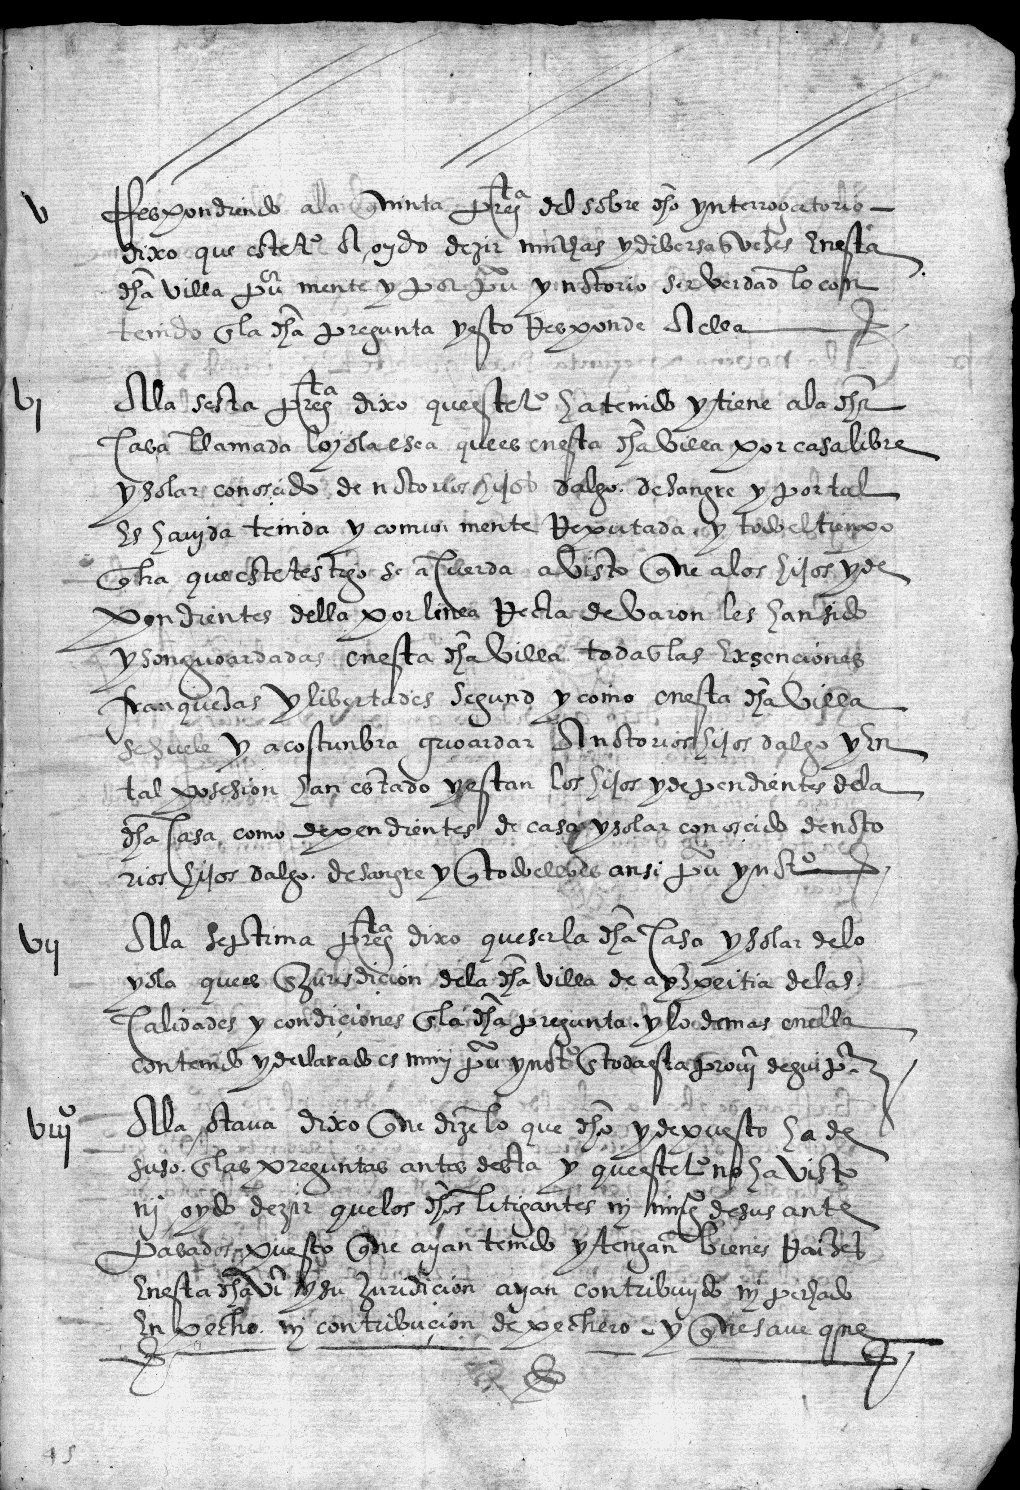 v Respondiendo a la quinta pregta del sobre dho ynterrogatorio
dixo que este to a oydo dezir muchas y diversas vezes en esta
dha villa puca mente y por pu y notorio ser verdad lo con
tenido en la dha pregunta y esto Responde a ella
vi A la sesta pregta dixo que este to ha tenido y tiene a la dha
casa llamada loyola e sea que es en esta dha villa por casa libre
y solar conoscido de notorios hijos dalgo de sangre y por tal
es havida tenida y comun mente Reputada y todo el tienpo
que este testigo se acuerda a visto que a los hijos y de
pendientes della por linea Recta de varon les han sido
y son guoardadas en esta dha villa todas las exsenciones
franquezas y libertades segund y como en esta dha villa
se suele y acostunbra guoardar a notorios hijos dalgo y en
tal posesion han estado y estan los hijos y dependientes de la
dha casa como dependientes de casa y solar conoscido de noto
rios hijos dalgo de sangre y todo ello es ansi pu y noto
vii A la septima pregta dixo que ser la dha casa y solar de lo
yola que es en Jurisdicion de la dha villa de ayzpeitia de las
calidades y condiciones en la dha pregunta y lo demas en ella
contenido y declarado es muy pu y noto en toda esta provi de guipa
viiio A la otava dixo que dize lo que dho y depuesto ha de
suso en las preguntas antes desta y que este to no ha visto
ni oydo dezir que los dhos litigantes ni ning de sus ante
pasados puesto que ayan tenido y tengan bienes Raizes
en esta dha vi y su Juridicion ayan contribuydo ni pechado
en pecho ni contribucion de pechero y que save que